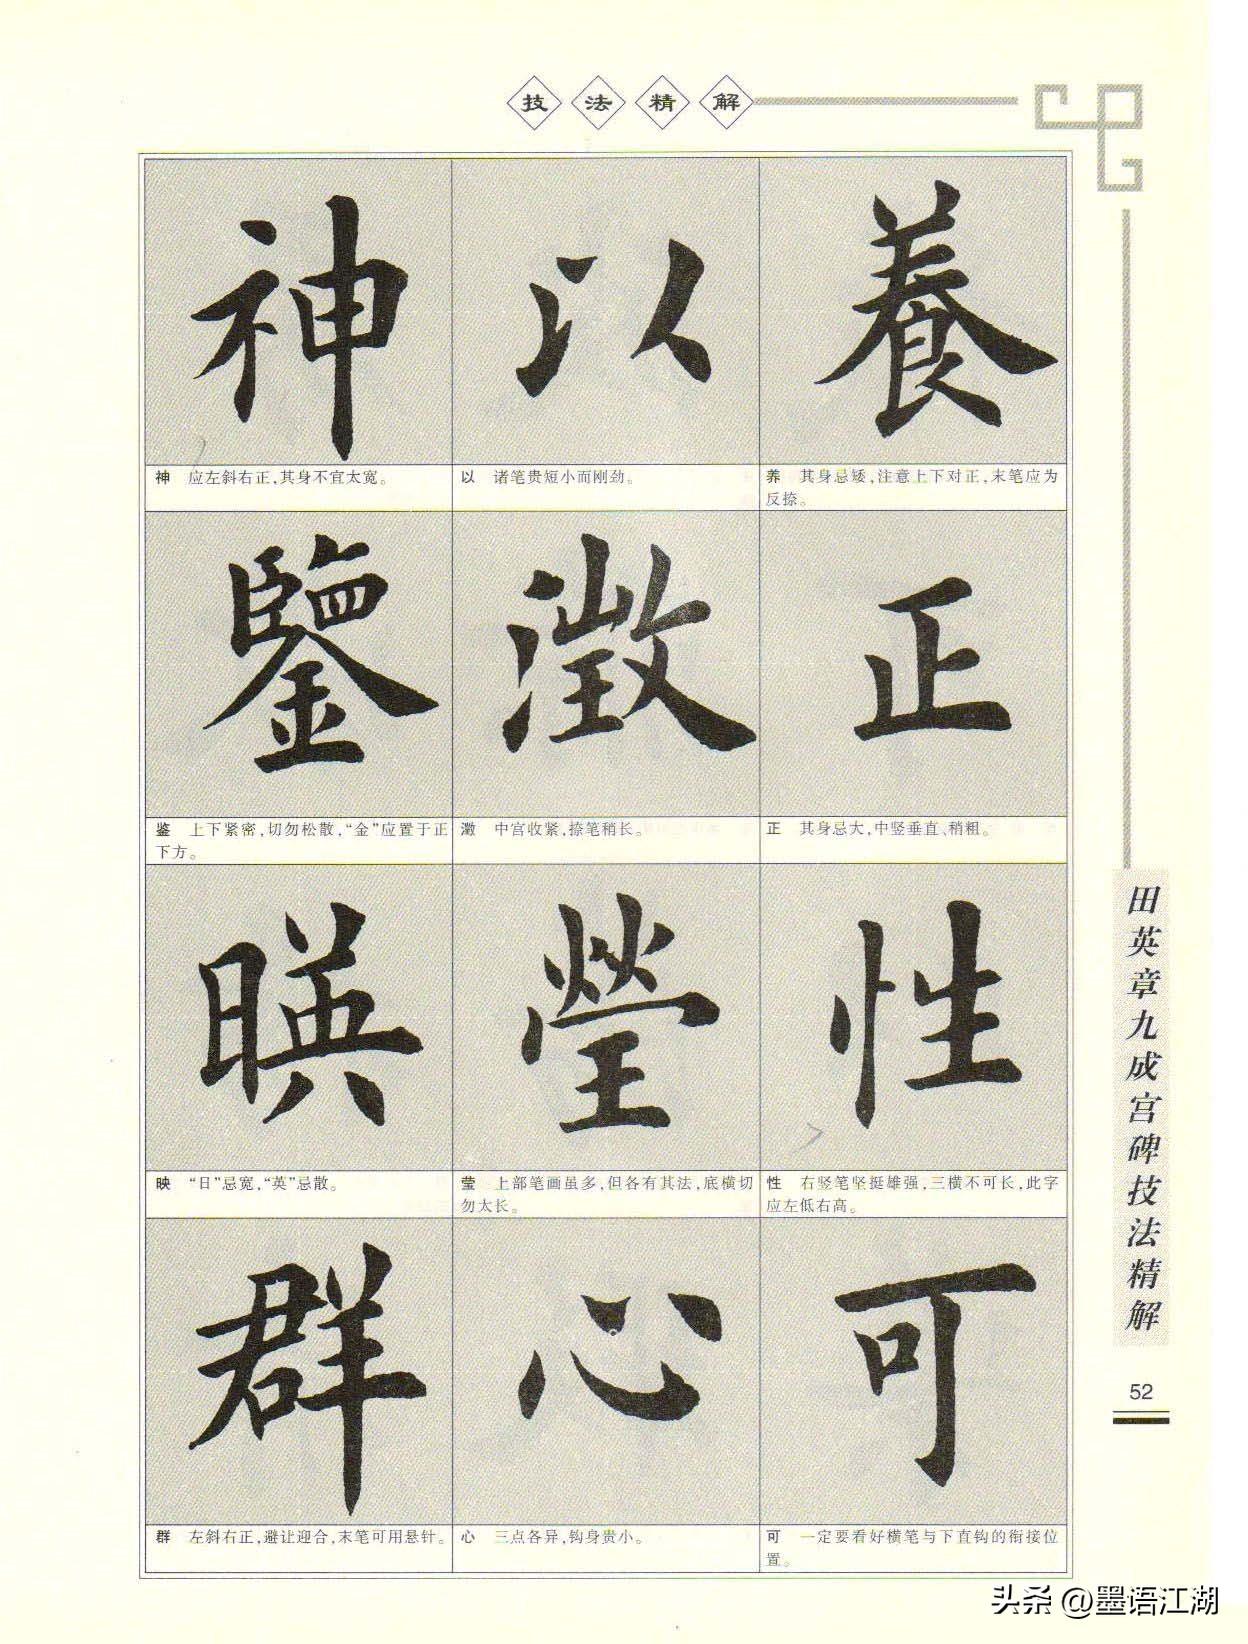 技法精解
神 以 養
神 应左斜右正，其身不宜太宽。
以 诸笔贵短小而刚劲。
养 其身忌矮，注意上下对正，末笔应为
反捺。
鑒 澂 正
鉴 上下紧密，切勿松散，“金”应置于正
下方。
澂 中宫收紧，捺笔稍长。
正 其身忌大，中竖垂直、稍粗。
暎 瑩 性
映 “日”忌宽，“英”忌散。
莹 上部笔画虽多，但各有其法，底横切
勿太长。
性 右竖笔坚挺雄强，三横不可长，此字
应左低右高。
群 心 可
群 左斜右正，避让迎合，末笔可用悬针。
心 三点各异，钩身贵小。
可 一定要看好横笔与下直钩的衔接位
置。
田英章九成宫碑技法精解
52
头条 @墨语江湖